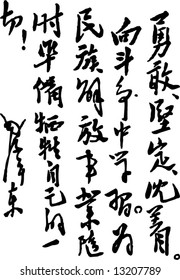 勇敢坚定沈着。
向斗争中学习。为
民族解放事业随
时准备牺牲自己的一
切！
毛泽东
shutterstock.com · 13207789